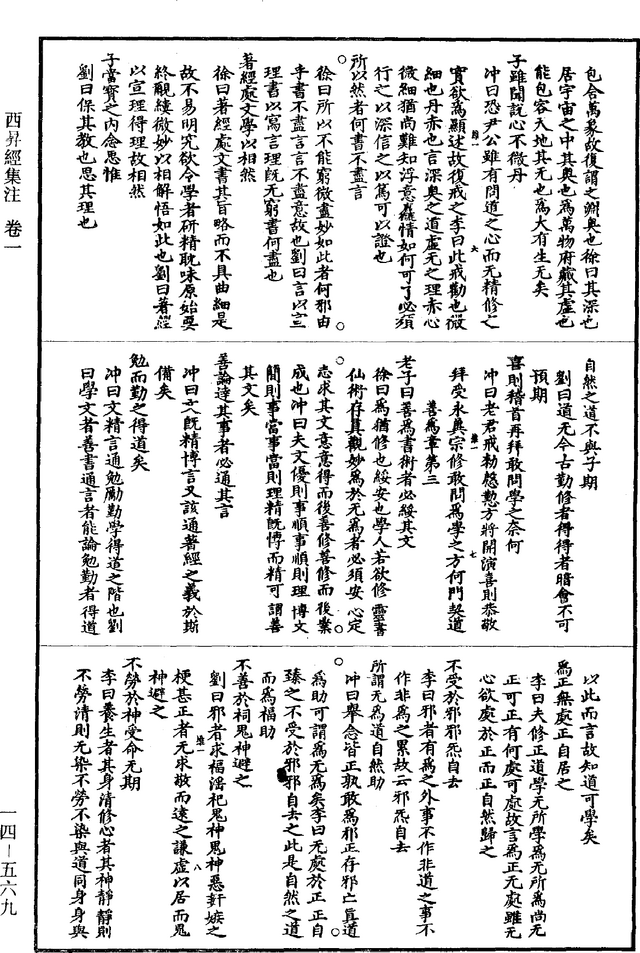 西昇經集注　卷一
一四—五六九
包含萬象故復謂之淵奧也徐曰其深也
居宇宙之中其奧也為萬物府藏其虛也
能包容天地其无也為大有生无矣
子雖聞說心不微丹
沖曰恐尹公雖有問道之心而无精修之
實欲為顯述故復戒之李曰此戒勸也微
細也丹赤也言深奧之道虛无之理赤心
微細猶尚難知浮意麤情如何可了必須
行之以深信之以篤可以證也
所以然者何書不盡言
徐曰所以不能窮微盡妙如此者何邪由
乎書不盡言言不盡意故也劉曰言以宣
理書以寫言理既无窮書何盡也
著經處文學以相然
徐曰著經處文書其百略而不具曲細是
故不易明究欲令學者研精耽味原始要
終覼縷微妙以相解悟如此也劉曰著經
以宣理得理故相然
子當寶之內念思惟
劉曰保其教也思其理也
自然之道不與子期
劉曰道无今古勤修者得得者暗會不可
預期
喜則稽首再拜敢問學之奈何
沖曰老君戒勑慇懃方將開演喜則恭敬
拜受永奠宗修敢問為學之方何門契道
善為章第三
老子曰善為書術者必綏其文
徐曰為猶修也綏安也學人若欲修靈書
仙術存真觀妙為於无為者必須安心定
志求其文意意得而後善修善修而後業
成也沖曰夫文優則事順事順則理博文
簡則事當事當則理精既博而精可謂善
其文矣
善論達其事者必通其言
沖曰文既精博言又該通著經之義於斯
備矣
勉而勤之得道矣
沖曰文精言通勉勵勤學得道之階也劉
曰學文者善書通言者能論勉勤者得道
以此而言故知道可學矣
為正無處正自居之
李曰夫修正道學无所學為无所為尚无
正可正有何處可處故言為正无處雖无
心欲處於正而正自然歸之
不受於邪邪炁自去
李曰邪者有為之外事不作非道之事不
作非為之累故云邪炁自去
所謂无為道自然助
沖曰舉念皆正孰敢為邪正存邪亡真道
為助可謂為无為矣李曰无處於正正自
臻之不受於邪邪自去之此是自然之道
而為福助
不善於祠鬼神避之
劉曰邪者求福滛祀鬼神鬼神惡姧嫉之
梗甚正者无求敬而遠之謙虛以居而鬼
神避之
不勞於神受命无期
李曰養生者其身清修心者其神靜靜則
不勞清則无染不勞不染與道同身身與